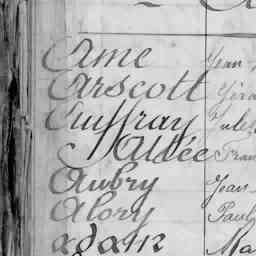 Ame Jean
Arscott
Auffray Jules
Aldée Fran
Aubry Jean-
Alory Paul
adam Ma